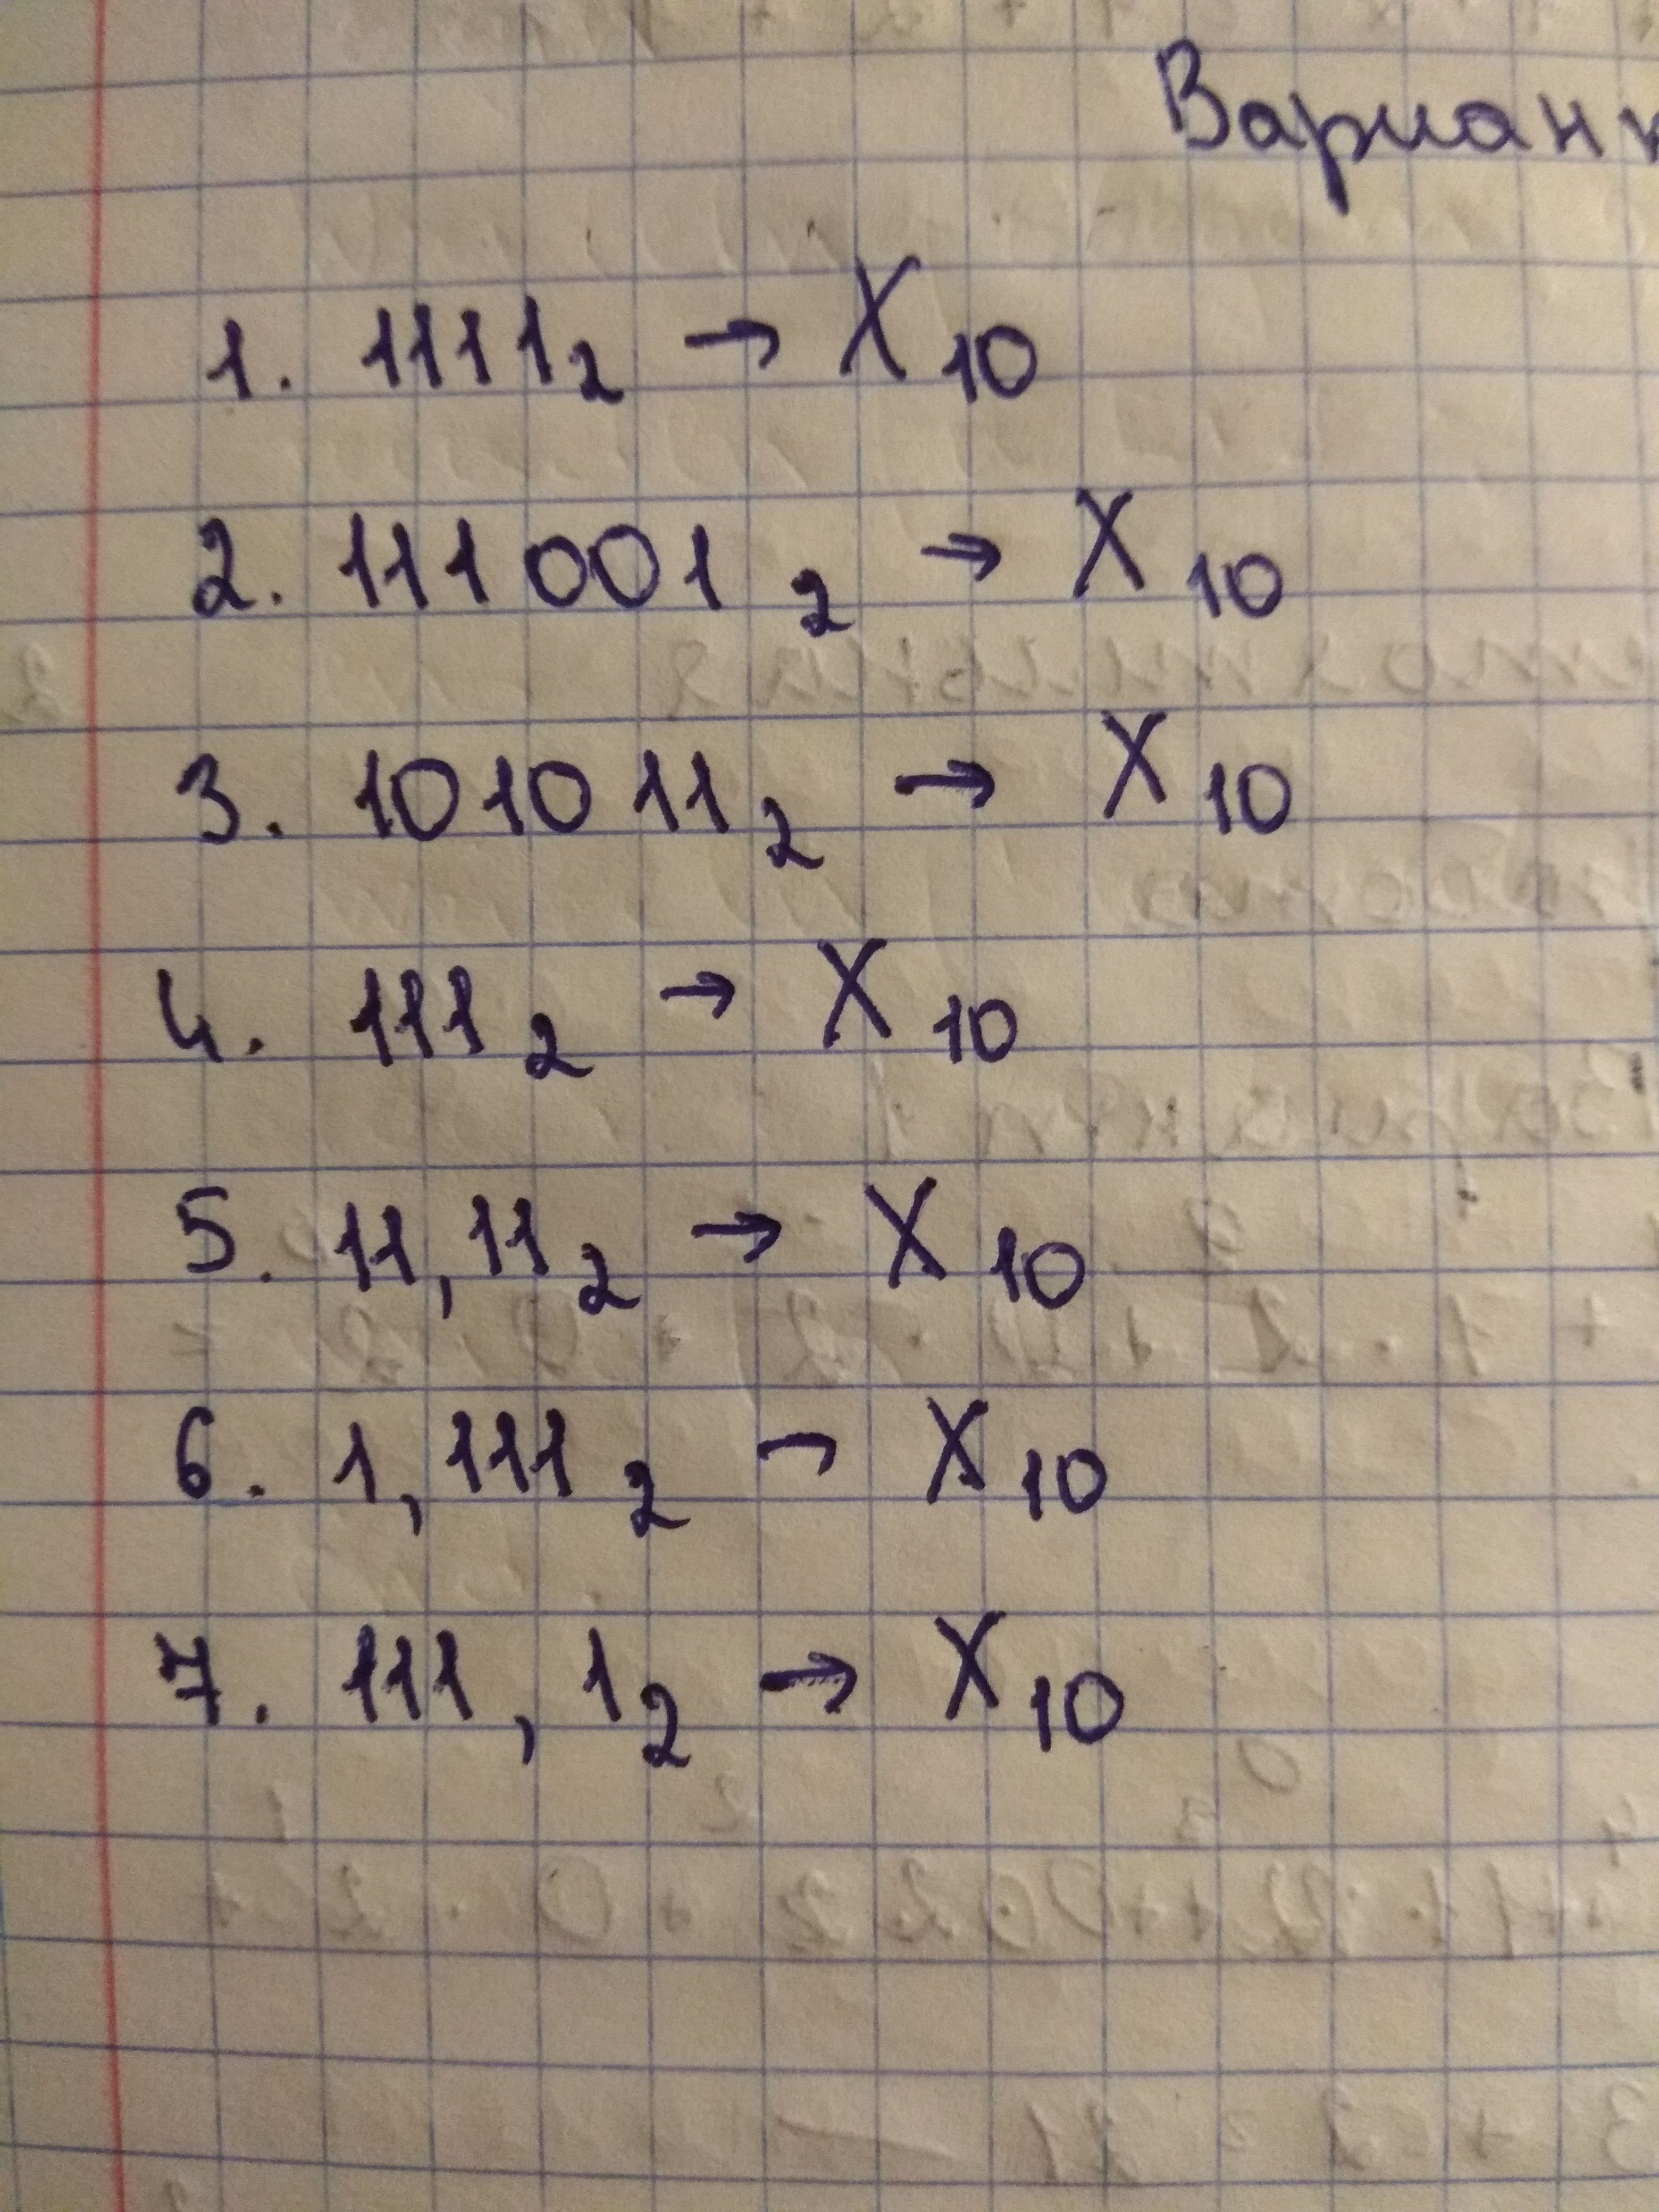 Вариан
1. 1111₂ → X₁₀
2. 111001₂ → X₁₀
3. 101011₂ → X₁₀
4. 111₂ → X₁₀
5. 11,11₂ → X₁₀
6. 1,111₂ → X₁₀
7. 111,1₂ → X₁₀